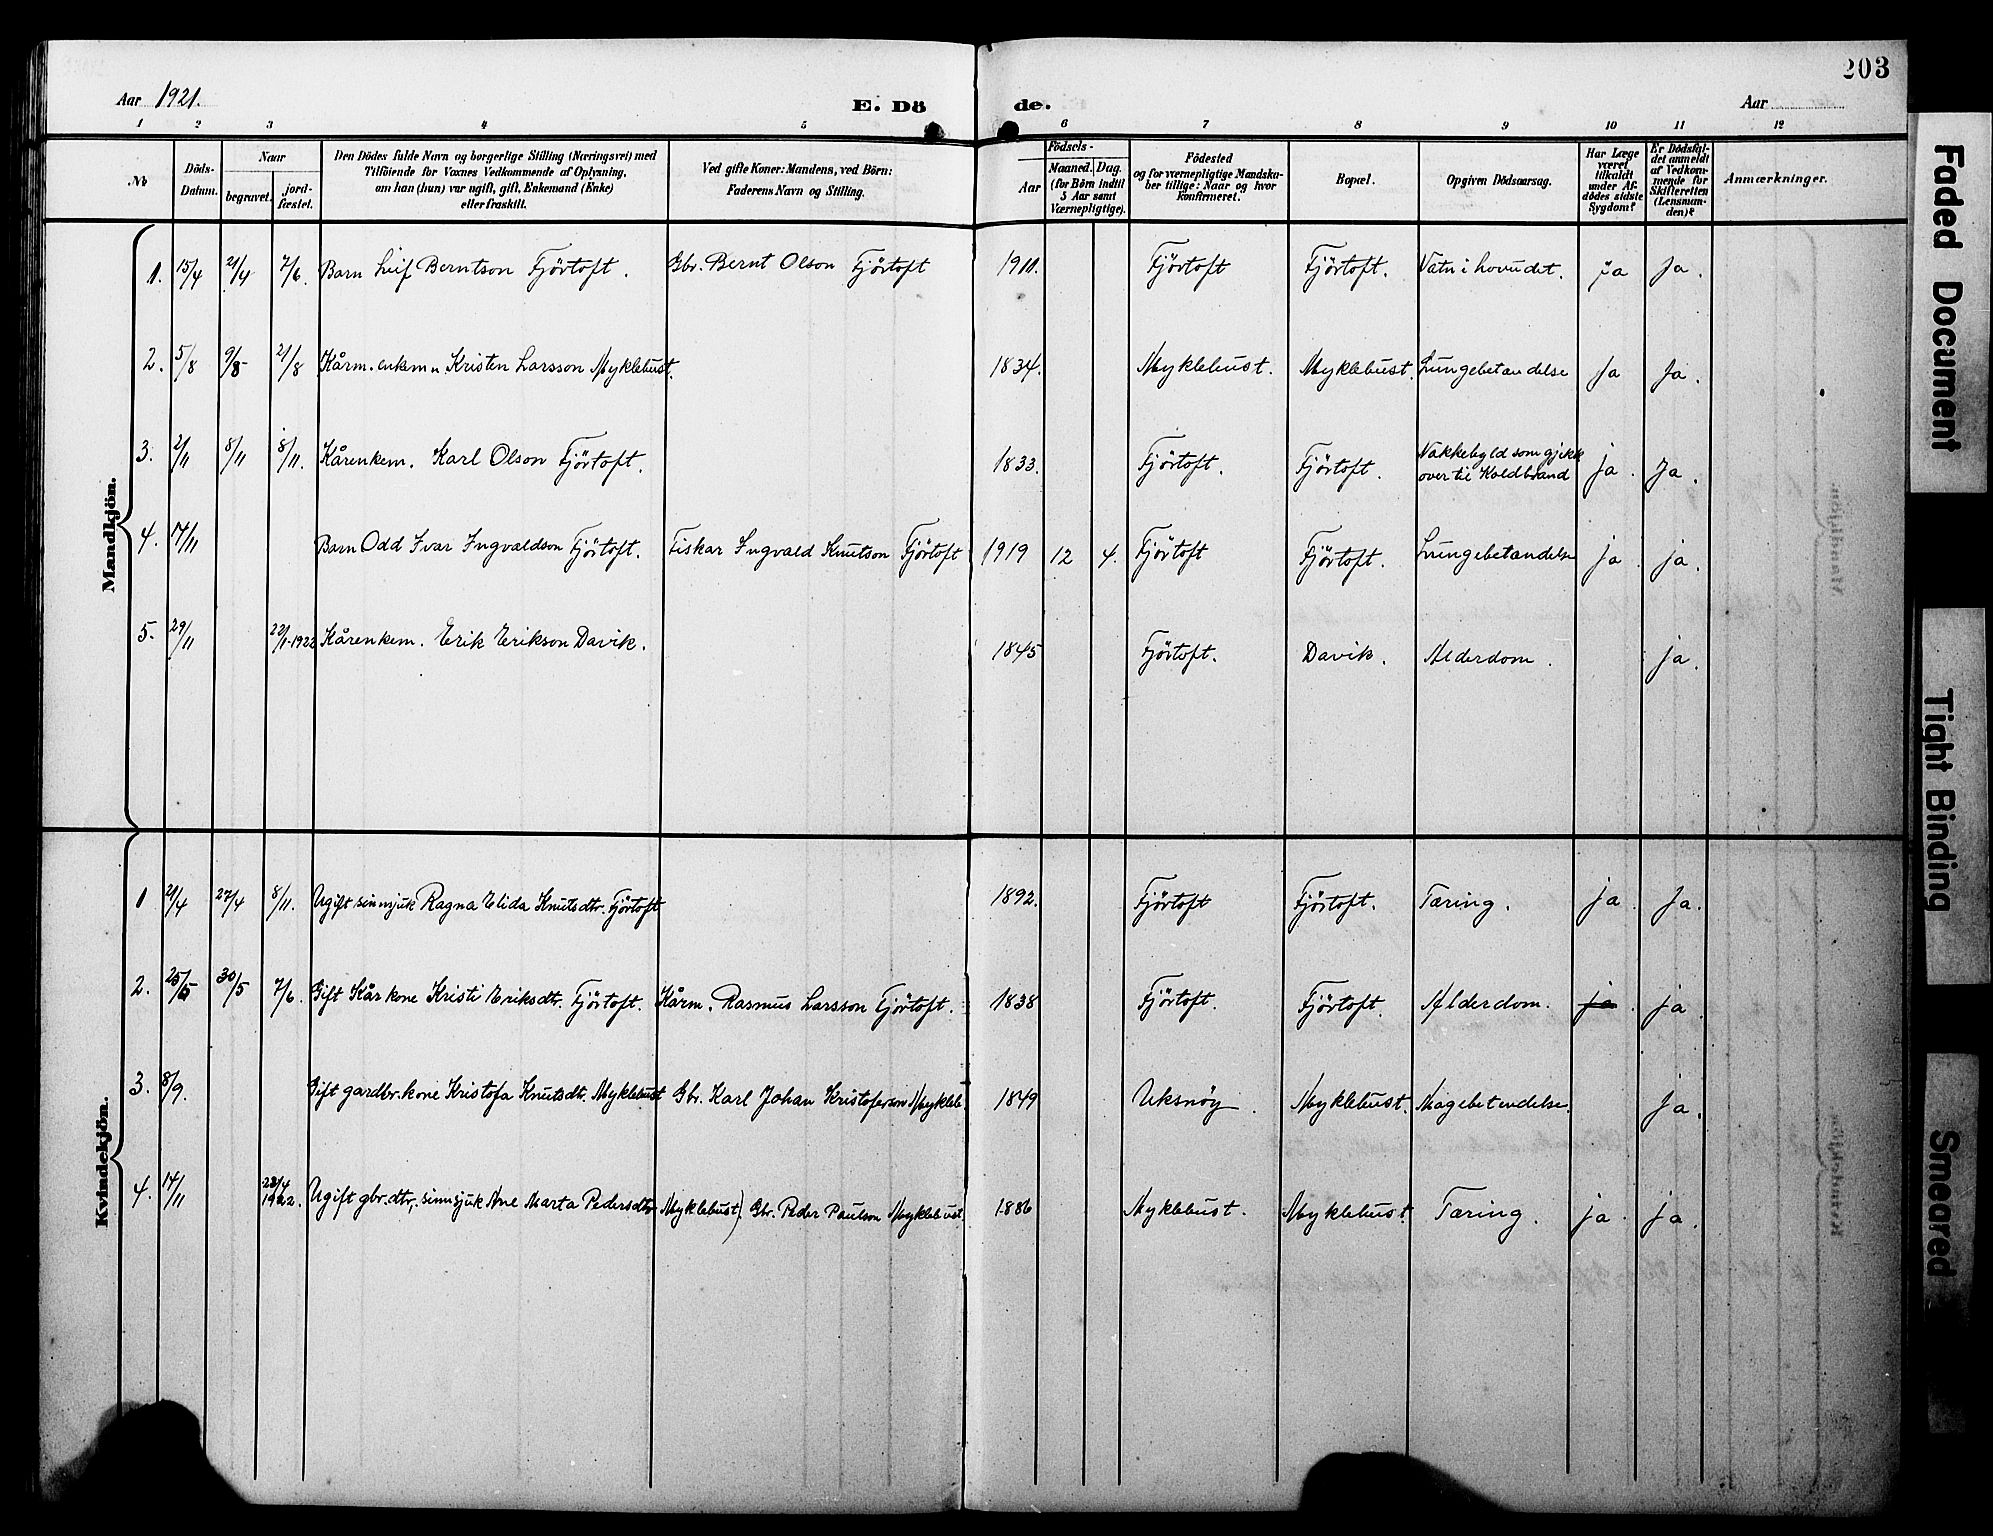 203
Aar 1921.
E. Dö de.
Aar
1 2 3 4 5 6 7 8 9 10 11 12
No
Döds-
Datum.
Naar
begravet.
jord-
fæstet.
Den Dödes fulde Navn og borgerlige Stilling (Næringsvei) med
Tilföiende for Voxnes Vedkommende af Oplysning,
om han (hun) var ugift, gift, Enkemand (Enke)
eller fraskilt.
Ved gifte Koner: Mandens, ved Börn:
Faderens Navn og Stilling.
Födsels-
Aar
Maaned. Dag.
(for Börn indtil
5 Aar samt
Værnepligtige).
Födested
og for værnepligtige Mandska-
ber tillige: Naar og hvor
konfirmeret.
Bopæl.
Opgiven Dödsaarsag.
Har Læge
været
tilkaldt
under Af-
dödes sidste
Sygdom?
Er Dödsfal-
det anmeldt
af Vedkom-
mende for
Skifteretten
(Lensman-
den)?
Anmærkninger.
Mandkjön.
1. 15/4 21/4 7/6. Barn Leif Berntson Fjörtoft. Gbr. Bernt Olson Fjörtoft 1911. Fjörtoft Fjörtoft. Vatn i hovudet. Ja Ja.
2. 5/8 9/8 21/8 Kårm. enkem. Kristen Larsson Myklebust. 1834. Myklebust. Myklebust. Lungebetændelse Ja Ja.
3. 2/11 8/11 8/11. Kårenkem. Karl Olson Fjörtoft. 1833. Fjörtoft. Fjörtoft. Nakkebyld som gjekk
over til Koldbrand ja. Ja.
4. 17/11 Barn Odd Ivar Ingvaldson Fjörtoft. Fiskar Ingvald Knutson Fjörtoft 1919 12 4. Fjörtoft Fjörtoft. Lungebetændelse ja ja.
5. 29/11 22/1-1922 Kårenkem. Erik Erikson Davik. 1845 Fjörtoft. Davik. Alderdom. ja.
Kvindekjön.
1 21/4 27/4 8/11. Ugift sinnsjuk Ragna Elida Knutsdtr. Fjörtoft 1892. Fjörtoft Fjörtoft. Tæring. ja. Ja.
2. 25/5 30/5 7/6. Gift Kårkone Kristi Eriksdt. Fjörtoft. Kårm. Rasmus Larsson Fjörtoft. 1838 Fjörtoft. Fjörtoft. Alderdom. ja. ja.
3. 8/9. Gift gardbr.kone Kristofa Knutsdt. Myklebust Gbr. Karl Johan Kristoferson Mykleb. 1849 Uksnöy. Myklebust. Magebetendelse. Ja.
4. 14/11 23/4 1922. Ugift gbr.dtr., sinnsjuk Ane Marta Pedersdtr. Myklebust). Gbr. Peder Paulson Myklebust 1886 Myklebust. Myklebust. Tæring. ja. ja.
Faded Document
Tight Binding
Smeared